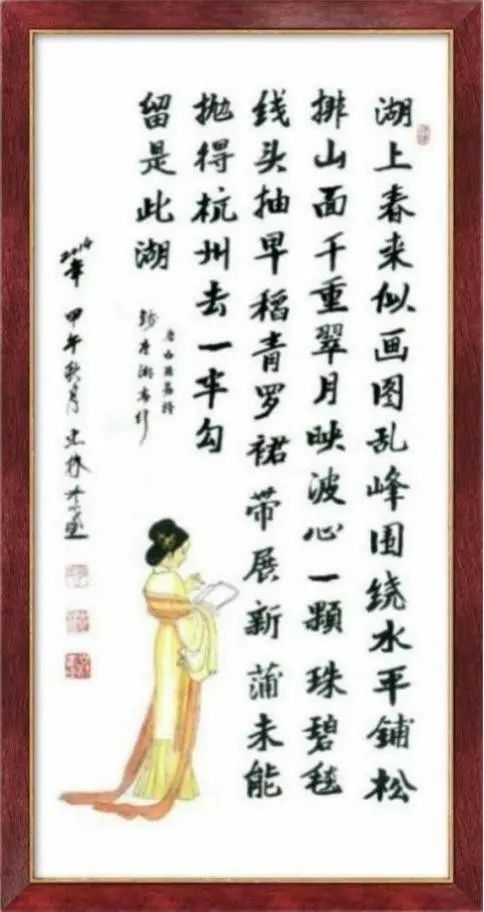 湖上春来似画图乱峰围绕水平铺松
排山面千重翠月映波心一颗珠碧毯
线头抽早稻青罗裙带展新蒲未能
抛得杭州去一半勾
留是此湖
唐白居易诗
2014年 甲午秋月